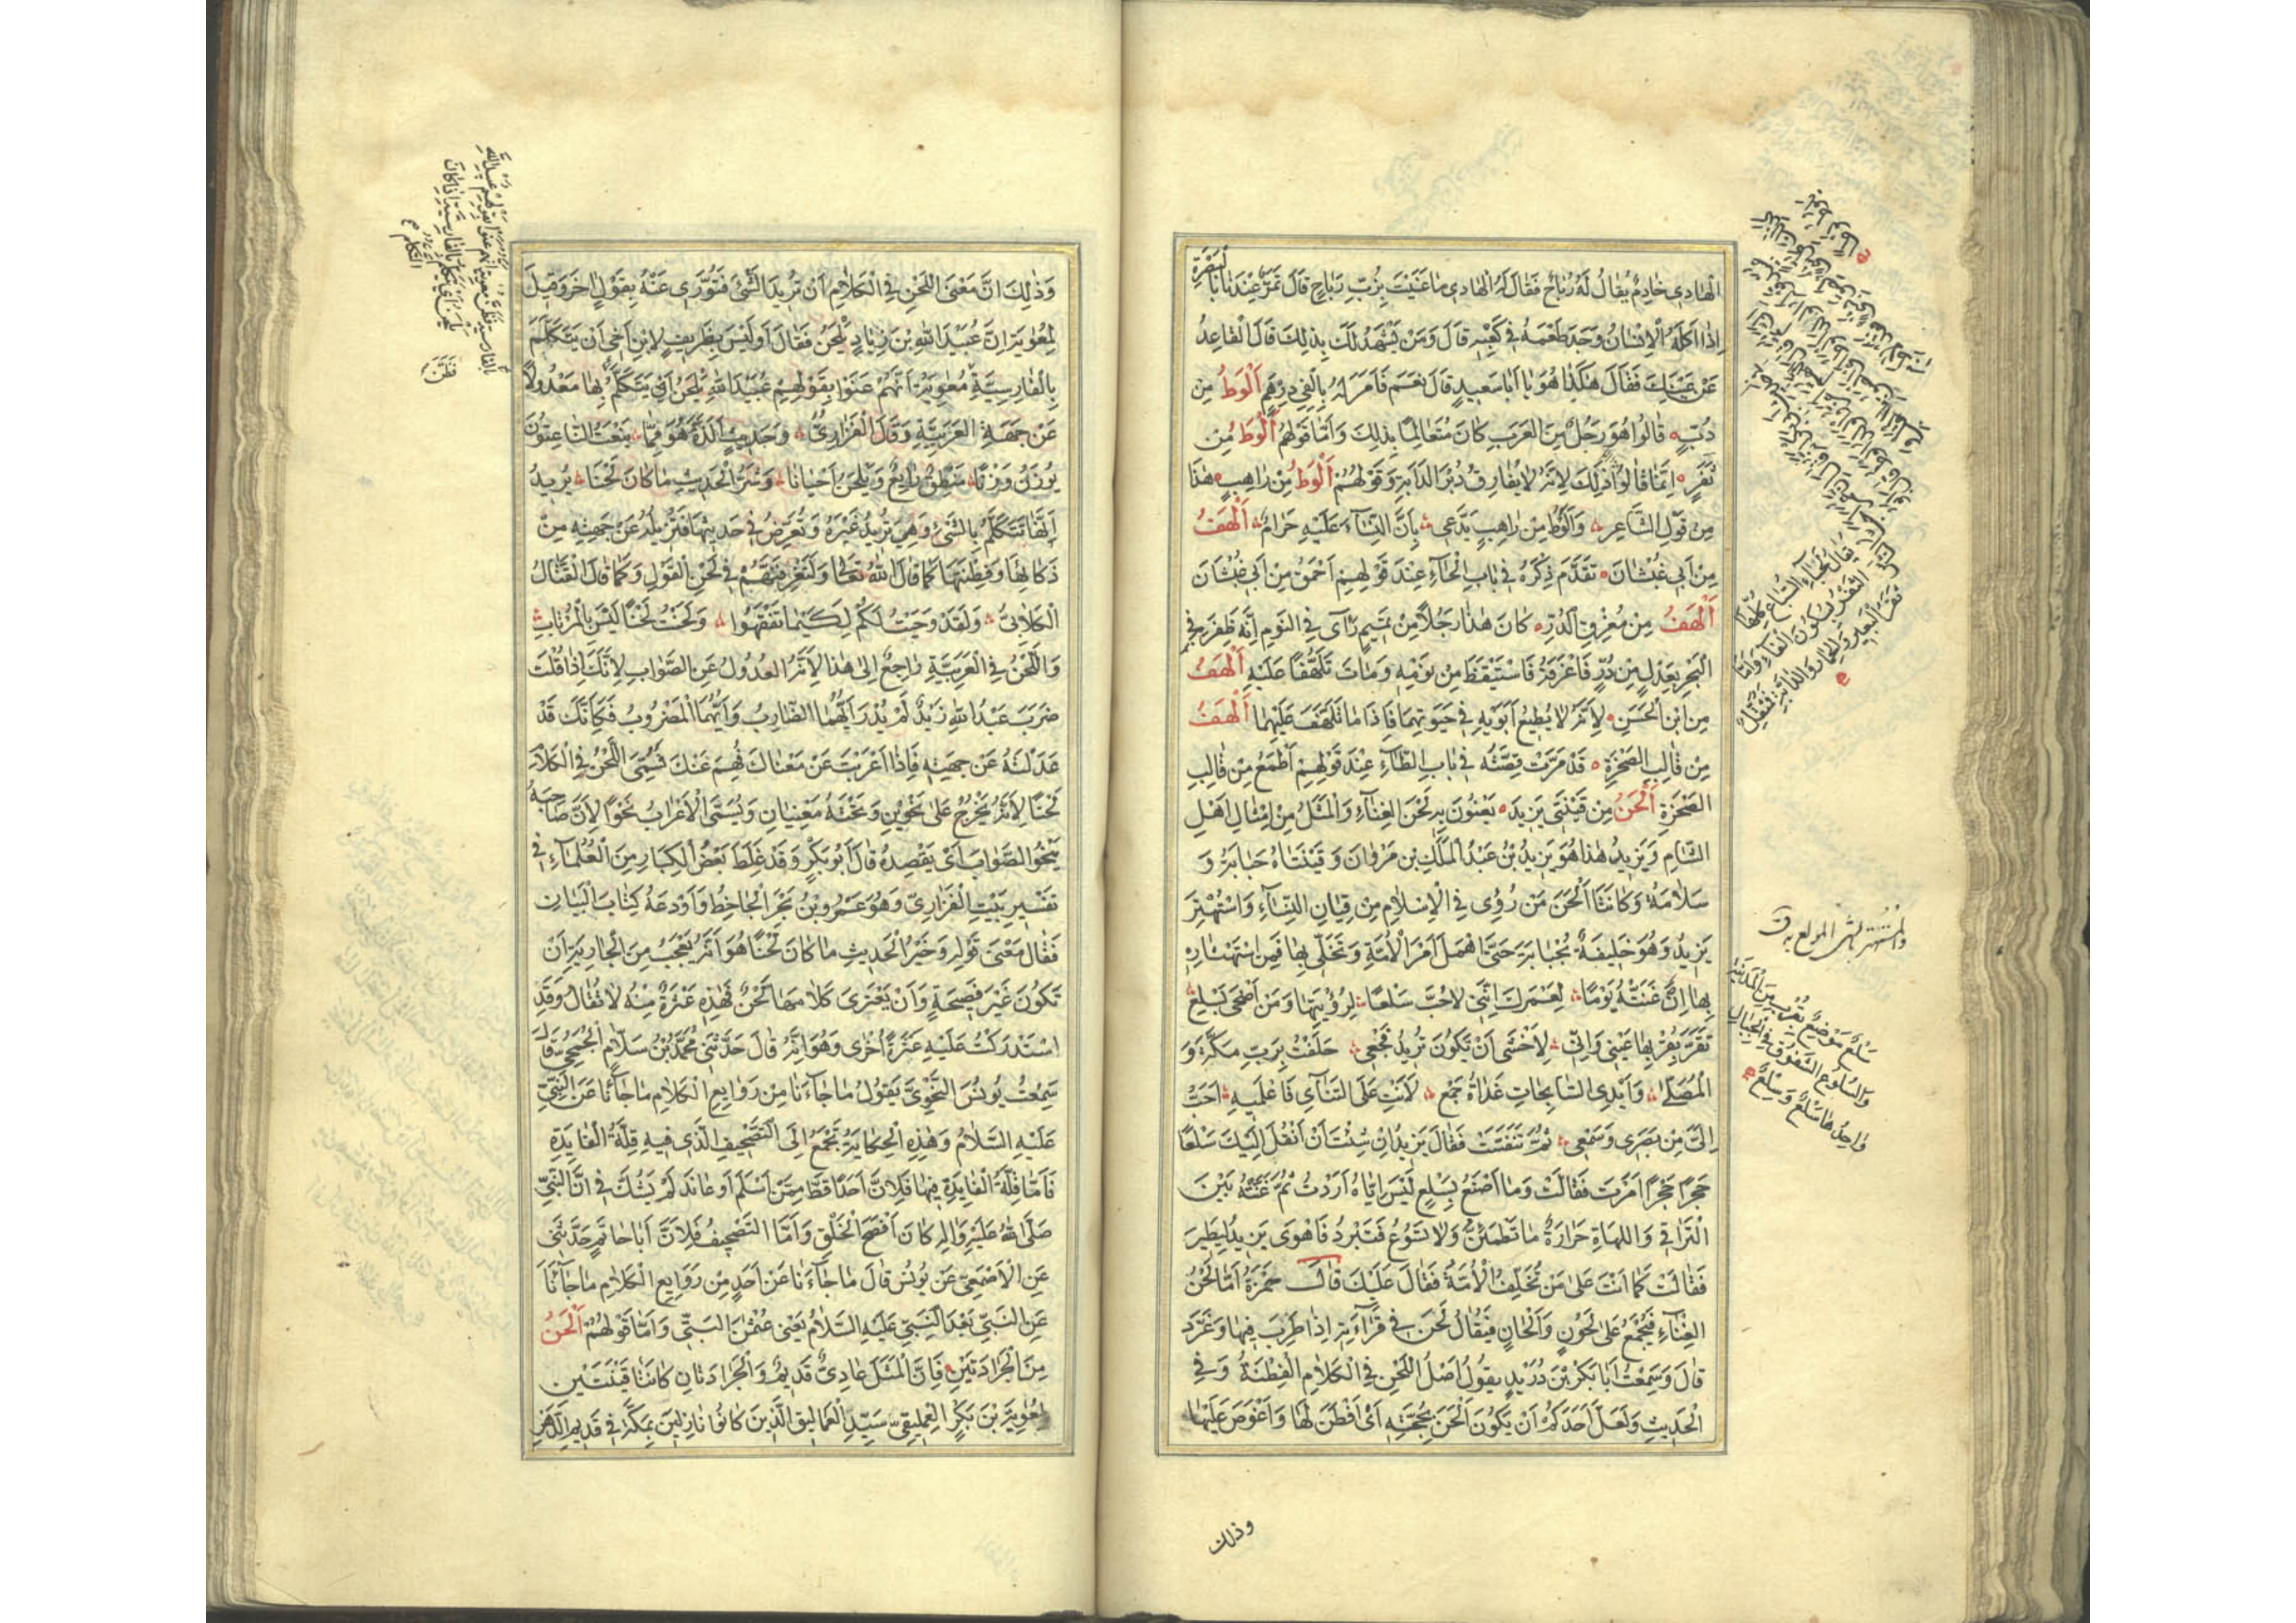 الْهَادِى خَادِمٌ يُقَالُ لَهُ رُبَاحٌ فَقَالَ لَهُ الْهَادِى مَا عَنَيْتَ بِزُبِّ رُبَاحٍ قَالَ تَمْرٌ عِنْدَنَا بِالْبَصْرَةِ
اِذَا اَكَلَهُ الْاِنْسَانُ وَجَدَ طَعْمَهُ فِى كَعْبِهِ قَالَ وَمَنْ يَشْهَدُ لَكَ بِذَلِكَ قَالَ الْقَاعِدُ
عَنْ يَمِينِكَ فَقَالَ هٰكَذَا هُوَ يَا اَبَا سَعِيدٍ قَالَ نَعَمْ فَاَمَرَ لَهُ بِاَلْفَىْ دِرْهَمٍ اَلْوَطُ مِنْ
دُبٍّ قَالُوا هُوَ رَجُلٌ مِنَ الْعَرَبِ كَانَ مُتَعَالِمًا بِذَلِكَ وَاَمَّا قَوْلُهُمْ اَلْوَطُ مِنْ
ثُفْرٍ اِنَّمَا قَالُوا ذَلِكَ لِاَنَّهُ لَا يُفَارِقُ دُبُرَ الدَّابَّةِ وَقَوْلُهُمْ اَلْوَطُ مِنْ رَاهِبٍ هٰذَا
مِنْ قَوْلِ الشَّاعِرِ وَاَلْوَطُ مِنْ رَاهِبٍ يَدَّعِى بِاَنَّ النِّسَآءَ عَلَيْهِ حَرَامٌ اَلْهَفُ
مِنْ اَبِى غُبْشَانَ تَقَدَّمَ ذِكْرُهُ فِى بَابِ الْحَآءِ عِنْدَ قَوْلِهِمْ اَحْمَقُ مِنْ اَبِى غُبْشَانَ
اَلْهَفُ مِنْ مُغْرِقِ الدُّرِّ كَانَ هٰذَا رَجُلًا مِنْ تَمِيمٍ رَآى فِى النَّوْمِ اَنَّهُ ظَفِرَ فِى
الْبَحْرِ بِعِدْلٍ مِنْ دُرٍّ فَاَغْرَقَهُ فَاسْتَيْقَظَ مِنْ نَوْمِهِ وَمَاتَ تَلَهُّفًا عَلَيْهِ اَلْهَفُ
مِنِ ابْنِ الْحَسَنِ لِاَنَّهُ لَا يُطِيعُ اَبَوَيْهِ فِى حَيَوتِهِمَا فَاِذَا مَاتَا تَلَهَّفَ عَلَيْهِمَا اَلْهَفُ
مِنْ قَالِبِ الصَّخْرَةِ قَدْ مَرَّتْ قِصَّتُهُ فِى بَابِ الطَّآءِ عِنْدَ قَوْلِهِمْ اَطْمَعُ مِنْ قَالِبِ
الصَّخْرَةِ اَلْحَنُ مِنْ قَيْنَتَىْ يَزِيدَ يَعْنُونَ بِهِ لَحْنَ الْغِنَآءِ وَالْمَثَلُ مِنْ اَمْثَالِ اَهْلِ
الشَّامِ وَيَزِيدُ هٰذَا هُوَ يَزِيدُ بْنُ عَبْدِ الْمَلِكِ بْنِ مَرْوَانَ وَقَيْنَتَاهُ حَبَابَةُ وَ
سَلَامَةُ وَكَانَتَا اَلْحَنَ مَنْ رُؤِىَ فِى الْاِسْلَامِ مِنْ قِيَانِ النِّسَآءِ وَاسْتُهْتِرَ
يَزِيدُ وَهُوَ خَلِيفَةٌ بِحَبَابَةَ حَتَّى اَهْمَلَ اَمْرَ الْاُمَّةِ وَتَخَلَّى بِهَا فَمِنِ اسْتِهْتَارِهِ
بِهَا اَنْ غَنَّتْهُ يَوْمًا لَعَمْرُكَ اِنَّنِى لَاُحِبُّ سَلْعًا لِرُؤْيَتِهَا وَمَنْ اَضْحَى بِسَلْعٍ
تَقَرُّ بِقُرْبِهَا عَيْنِى وَاِنِّى لَاَخْشَى اَنْ تَكُونَ تُرِيدُ فَجْعِى حَلَفْتُ بِرَبِّ مَكَّةَ وَ
الْمُصَلَّى وَاَيْدِى السَّابِحَاتِ غَدَاةَ جَمْعٍ لَاَنْتِ عَلَى التَّنَآئِى فَاعْلَمِيهِ اَحَبُّ
اِلَىَّ مِنْ بَصَرِى وَسَمْعِى ثُمَّ تَنَفَّسَتْ فَقَالَ يَزِيدُ اِنْ شِئْتِ اَنْ اَنْقُلَ اِلَيْكِ سَلْعًا
حَجَرًا حَجَرًا اَمَرْتُ فَقَالَتْ وَمَا اَصْنَعُ بِسَلْعٍ لَيْسَ اِيَّاهُ اَرَدْتُ ثُمَّ غَنَّتْهُ بَيْنَ
التَّرَاقِى وَاللَّهَاةِ حَرَارَةٌ مَا تَطْمَئِنُّ وَلَا تَسُوغُ فَتَبْرُدُ فَاَهْوَى يَزِيدُ لِيَطِيرَ
فَقَالَتْ كَمَا اَنْتَ عَلَى مَنْ تُخَلِّفُ الْاُمَّةَ فَقَالَ عَلَيْكِ قَالَ حَمْزَةُ اَمَّا لَحْنُ
الْغِنَآءِ فَيُجْمَعُ عَلَى لُحُونٍ وَاَلْحَانٍ فَيُقَالُ لَحَنَ فِى قِرَآءَتِهِ اِذَا طَرَّبَ فِيهَا وَغَرَّدَ
قَالَ وَسَمِعْتُ اَبَا بَكْرِ بْنَ دُرَيْدٍ يَقُولُ اَصْلُ اللَّحْنِ فِى الْكَلَامِ الْفِطْنَةُ وَفِى
الْحَدِيثِ وَلَعَلَّ اَحَدَكُمْ اَنْ يَكُونَ اَلْحَنَ بِحُجَّتِهِ اَىْ اَفْطَنَ لَهَا وَاَغْوَصَ عَلَيْهَا
وذلك
يُقَالُ لِحَيَآءِ السِّبَاعِ كُلِّهَا
الثَّفْرُ بِسُكُونِ الْفَآءِ وَاَمَّا
ثَفَرُ الْبَعِيرِ وَالْحِمَارِ وَالدَّابَّةِ فَمُثَقَّلٌ
والمستهتر بالشئ المولع به ق
سَلْعٌ مَوْضِعٌ بِقُرْبٍ مِنَ الْمَدِينَةِ
وَالسُّلُوعُ الشُّقُوقُ فِى الْجِبَالِ
وَاحِدُهَا سَلْعٌ وَسِلْعٌ
وَذٰلِكَ اَنَّ مَعْنَى اللَّحْنِ فِى الْكَلَامِ اَنْ تُرِيدَ الشَّىْءَ فَتُوَرِّى عَنْهُ بِقَوْلٍ اٰخَرَ وَقِيلَ
لِمُعٰوِيَةَ اِنَّ عُبَيْدَ اللّٰهِ بْنَ زِيَادٍ يَلْحَنُ فَقَالَ اَوَلَيْسَ بِظَرِيفٍ لِابْنِ اَخِى اَنْ يَتَكَلَّمَ
بِالْفَارِسِيَّةِ مُعٰوِيَةُ اَنَّهُمْ عَنَوْا بِقَوْلِهِمْ عُبَيْدُ اللّٰهِ يَلْحَنُ اَىْ يَتَكَلَّمُ بِهَا مَعْدُولًا
عَنْ جِهَةِ الْعَرَبِيَّةِ وَقَالَ الْفَزَارِىُّ وَحَدِيثٍ اَلَذُّهُ هُوَ مِمَّا يَنْعَتُ النَّاعِتُونَ
يُوزَنُ وَزْنًا مَنْطِقٌ رَايِعٌ وَيَلْحَنُ اَحْيَانًا وَشَرُّ الْحَدِيثِ مَا كَانَ لَحْنَا يُرِيدُ
اَنَّهَا تَتَكَلَّمُ بِالشَّىْءِ وَهِىَ تُرِيدُ غَيْرَهُ وَتُعَرِّضُ فِى حَدِيثِهَا فَتُزِيلُهُ عَنْ جِهَتِهِ مِنْ
ذَكَائِهَا وَفِطْنَتِهَا كَمَا قَالَ اللّٰهُ تَعَالَى وَلَتَعْرِفَنَّهُمْ فِى لَحْنِ الْقَوْلِ وَكَمَا قَالَ الْقَتَّالُ
الْكِلَابِىُّ وَلَقَدْ وَحَيْتُ لَكُمْ لِكَيْمَا تَفْقَهُوا وَلَحَنْتُ لَحْنًا لَيْسَ بِالْمُرْتَابِ
وَاللَّحْنُ فِى الْعَرَبِيَّةِ رَاجِعٌ اِلَى هٰذَا لِاَنَّهُ الْعُدُولُ عَنِ الصَّوَابِ لِاَنَّكَ اِذَا قُلْتَ
ضَرَبَ عَبْدُ اللّٰهِ زَيْدٌ لَمْ يُدْرَ اَيُّهُمَا الضَّارِبُ وَاَيُّهُمَا الْمَضْرُوبُ فَكَاَنَّكَ قَدْ
عَدَلْتَهُ عَنْ جِهَتِهِ فَاِذَا اَعْرَبْتَ عَنْ مَعْنَاكَ فُهِمَ عَنْكَ فَسُمِّىَ اللَّحْنُ فِى الْكَلَامِ
لَحْنًا لِاَنَّهُ يَخْرُجُ عَلَى نَحْوَيْنِ وَتَحْتَهُ مَعْنِيَانِ وَيُسَمَّى الْاِعْرَابُ نَحْوًا لِاَنَّ صَاحِبَهُ
يَنْحُو الصَّوَابَ اَىْ يَقْصِدُهُ قَالَ اَبُو بَكْرٍ وَقَدْ غَلِطَ بَعْضُ الْكِبَارِ مِنَ الْعُلَمَآءِ فِى
تَفْسِيرِ بَيْتِ الْفَزَارِىِّ وَهُوَ عَمْرُو بْنُ بَحْرٍ الْجَاحِظُ وَاَوْدَعَهُ كِتَابَ الْبَيَانِ
فَقَالَ مَعْنَى قَوْلِهِ وَخَيْرُ الْحَدِيثِ مَا كَانَ لَحْنًا هُوَ اَنَّهُ يَعْجَبُ مِنَ الْجَارِيَةِ اَنْ
تَكُونَ غَيْرَ فَصِيحَةٍ وَاَنْ يَعْتَرِىَ كَلَامَهَا لَحْنٌ فَهٰذِهِ عَثْرَةٌ مِنْهُ لَا تُقَالُ وَقَدِ
اسْتَدْرَكْتُ عَلَيْهِ عَثْرَةً اُخْرَى وَهُوَ اَنَّهُ قَالَ حَدَّثَنِى مُحَمَّدُ بْنُ سَلَّامٍ الْجُمَحِىُّ قَالَ
سَمِعْتُ يُونُسَ النَّحْوِىَّ يَقُولُ مَا جَآءَنَا مِنْ رَوَايِعِ الْكَلَامِ مَا جَآءَنَا عَنِ النَّبِىِّ
عَلَيْهِ السَّلَامُ وَهٰذِهِ الْحِكَايَةُ تَجْمَعُ اِلَى التَّصْحِيفِ الَّذِى فِيهِ قِلَّةَ الْفَايِدَةِ
فَاَمَّا قِلَّةُ الْفَايِدَةِ فِيهَا فَلِاَنَّ اَحَدًا قَطُّ مِمَّنْ اَسْلَمَ اَوْ عَانَدَ لَمْ يَشُكَّ فِى اَنَّ النَّبِىَّ
صَلَّى اللّٰهُ عَلَيْهِ وَاٰلِهِ كَانَ اَفْصَحَ الْخَلْقِ وَاَمَّا التَّصْحِيفُ فَلِاَنَّ اَبَا حَاتِمٍ حَدَّثَنِى
عَنِ الْاَصْمَعِىِّ عَنْ يُونُسَ قَالَ مَا جَآءَنَا عَنْ اَحَدٍ مِنْ رَوَايِعِ الْكَلَامِ مَا جَآءَنَا
عَنِ النَّبِىِّ بَعْدَ النَّبِىِّ عَلَيْهِ السَّلَامُ يَعْنِى عُثْمٰنَ الْبَتِّىَّ وَاَمَّا قَوْلُهُمْ اَلْحَنُ
مِنَ الْجَرَادَتَيْنِ فَاِنَّ الْمَثَلَ عَادِىٌّ قَدِيمٌ وَالْجَرَادَتَانِ كَانَتَا قَيْنَتَيْنِ
لِمُعٰوِيَةَ بْنِ بَكْرٍ الْعِمْلِيقِىِّ سَيِّدِ الْعَمَالِيقِ الَّذِينَ كَانُوا نَازِلِينَ بِمَكَّةَ فِى قَدِيمِ الدَّهْرِ